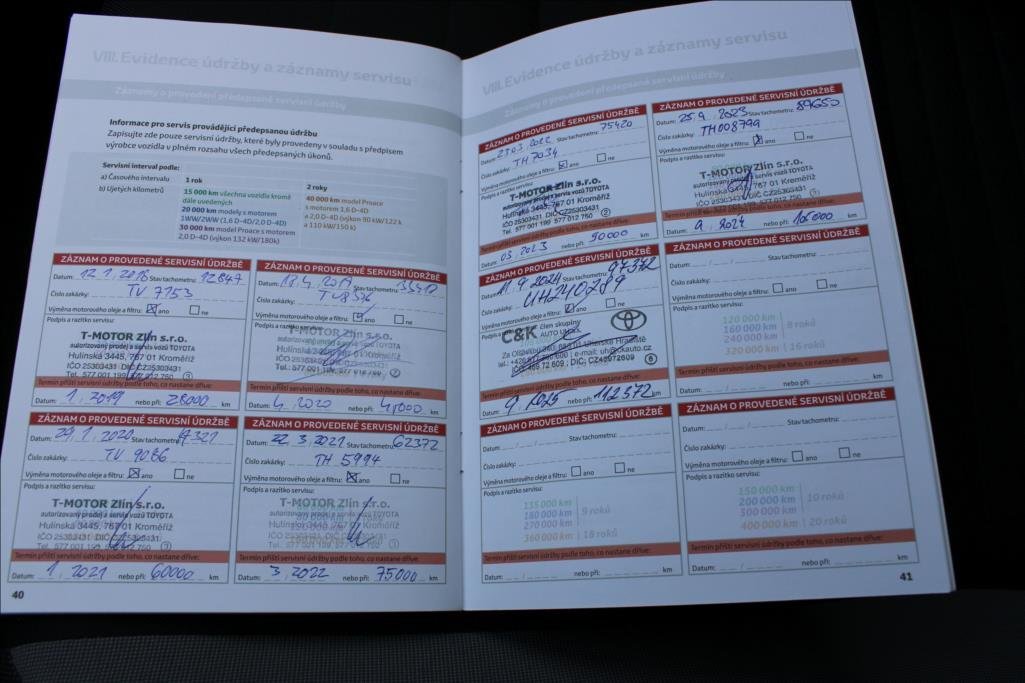 VIII. Evidence údržby a záznamy servisu
Záznamy o provedení předepsané servisní údržby
Informace pro servis provádějící předepsanou údržbu
Zapisujte zde pouze servisní údržby, které byly provedeny v souladu s předpisem
výrobce vozidla v plném rozsahu všech předepsaných úkonů.
Servisní interval podle:
a) Časového intervalu 1 rok 2 roky
b) Ujetých kilometrů 15 000 km všechna vozidla kromě
dále uvedených
20 000 km modely s motorem
1WW/2WW (1,6 D-4D/2,0 D-4D)
30 000 km model Proace s motorem
2,0 D-4D (výkon 132 kW/180k)
40 000 km model Proace
s motorem 1,6 D-4D
a 2,0 D-4D (výkon 90 kW/122 k
a 110 kW/150 k)
ZÁZNAM O PROVEDENÉ SERVISNÍ ÚDRŽBĚ
Datum: 12.1.2018 Stav tachometru: 12847
Číslo zakázky: TV 7753
Výměna motorového oleje a filtru: ano ne
Podpis a razítko servisu:
T-MOTOR Zlín s.r.o.
autorizovaný prodej a servis vozů TOYOTA
Hulínská 3445, 767 01 Kroměříž
IČO 25303431 DIČ CZ25303431
Tel. 577 001 199
Termín příští servisní údržby podle toho, co nastane dříve:
Datum: 1. 2019 nebo při: 28000 km
ZÁZNAM O PROVEDENÉ SERVISNÍ ÚDRŽBĚ
Datum: Stav tachometru:
Číslo zakázky: TV8376
Výměna motorového oleje a filtru: ano ne
Podpis a razítko servisu:
T-MOTOR Zlín s.r.o.
autorizovaný prodej a servis vozů TOYOTA
Hulínská 3445, 767 01 Kroměříž
IČO 25303431 DIČ CZ25303431
Tel.: 577 001 199, 577 012 750
Termín příští servisní údržby podle toho, co nastane dříve:
Datum: 4. 2020 nebo při: km
ZÁZNAM O PROVEDENÉ SERVISNÍ ÚDRŽBĚ
Datum: 29.1.2020 Stav tachometru: 47321
Číslo zakázky: TV 9086
Výměna motorového oleje a filtru: ano ne
Podpis a razítko servisu:
T-MOTOR Zlín s.r.o.
autorizovaný prodej a servis vozů TOYOTA
Hulínská 3445, 767 01 Kroměříž
IČO 25303431 DIČ CZ25303431
Tel. 577 001 199, 577 012 750
Termín příští servisní údržby podle toho, co nastane dříve:
Datum: 1. 2021 nebo při: 60000 km
ZÁZNAM O PROVEDENÉ SERVISNÍ ÚDRŽBĚ
Datum: 22.3.2021 Stav tachometru: 62372
Číslo zakázky: TH 5994
Výměna motorového oleje a filtru: ano ne
Podpis a razítko servisu:
T-MOTOR Zlín s.r.o.
autorizovaný prodej a servis vozů TOYOTA
Hulínská 3445, 767 01 Kroměříž
IČO 25303431 DIČ CZ25303431
Tel. 577 001 199, 577 012 750
Termín příští servisní údržby podle toho, co nastane dříve:
Datum: 3. 2022 nebo při: 75000 km
40
VIII. Evidence údržby a záznamy servisu
Záznamy o provedení předepsané servisní údržby
ZÁZNAM O PROVEDENÉ SERVISNÍ ÚDRŽBĚ
Datum: 23.03.2022 Stav tachometru: 75420
Číslo zakázky: TH7034
Výměna motorového oleje a filtru: ano ne
Podpis a razítko servisu:
T-MOTOR Zlín s.r.o.
autorizovaný prodej a servis vozů TOYOTA
Hulínská 3445, 767 01 Kroměříž
IČO 25303431, DIČ CZ25303431
Tel. 577 001 199 577 012 750
Termín příští servisní údržby podle toho, co nastane dříve:
Datum: 03. 2023 nebo při: 90000 km
ZÁZNAM O PROVEDENÉ SERVISNÍ ÚDRŽBĚ
Datum: 25.9.2023 Stav tachometru: 89650
Číslo zakázky: TH008799
Výměna motorového oleje a filtru: ano ne
Podpis a razítko servisu:
T-MOTOR Zlín s.r.o.
autorizovaný prodej a servis vozů TOYOTA
Hulínská 3445, 767 01 Kroměříž
IČO 25303431, DIČ CZ25303431
Tel. 577 001 199, 577 012 750
Termín příští servisní údržby podle toho, co nastane dříve:
Datum: 9. 2024 nebo při: km
ZÁZNAM O PROVEDENÉ SERVISNÍ ÚDRŽBĚ
Datum: 11.9.2024 Stav tachometru: 97372
Číslo zakázky: UH240289
Výměna motorového oleje a filtru: ano ne
Podpis a razítko servisu:
C&K člen skupiny
AUTO UH
TOYOTA
Termín příští servisní údržby podle toho, co nastane dříve:
Datum: 9. 2025 nebo při: 112372 km
ZÁZNAM O PROVEDENÉ SERVISNÍ ÚDRŽBĚ
Datum: Stav tachometru:
Číslo zakázky:
Výměna motorového oleje a filtru: ano ne
Podpis a razítko servisu:
120 000 km
160 000 km 8 roků
240 000 km
320 000 km 16 roků
Termín příští servisní údržby podle toho, co nastane dříve:
Datum: nebo při: km
ZÁZNAM O PROVEDENÉ SERVISNÍ ÚDRŽBĚ
Datum: Stav tachometru:
Číslo zakázky:
Výměna motorového oleje a filtru: ano ne
Podpis a razítko servisu:
135 000 km
180 000 km 9 roků
270 000 km
360 000 km 18 roků
Termín příští servisní údržby podle toho, co nastane dříve:
Datum: nebo při: km
ZÁZNAM O PROVEDENÉ SERVISNÍ ÚDRŽBĚ
Datum: Stav tachometru:
Číslo zakázky:
Výměna motorového oleje a filtru: ano ne
Podpis a razítko servisu:
150 000 km
200 000 km 10 roků
300 000 km
400 000 km 20 roků
Termín příští servisní údržby podle toho, co nastane dříve:
Datum: nebo při: km
41